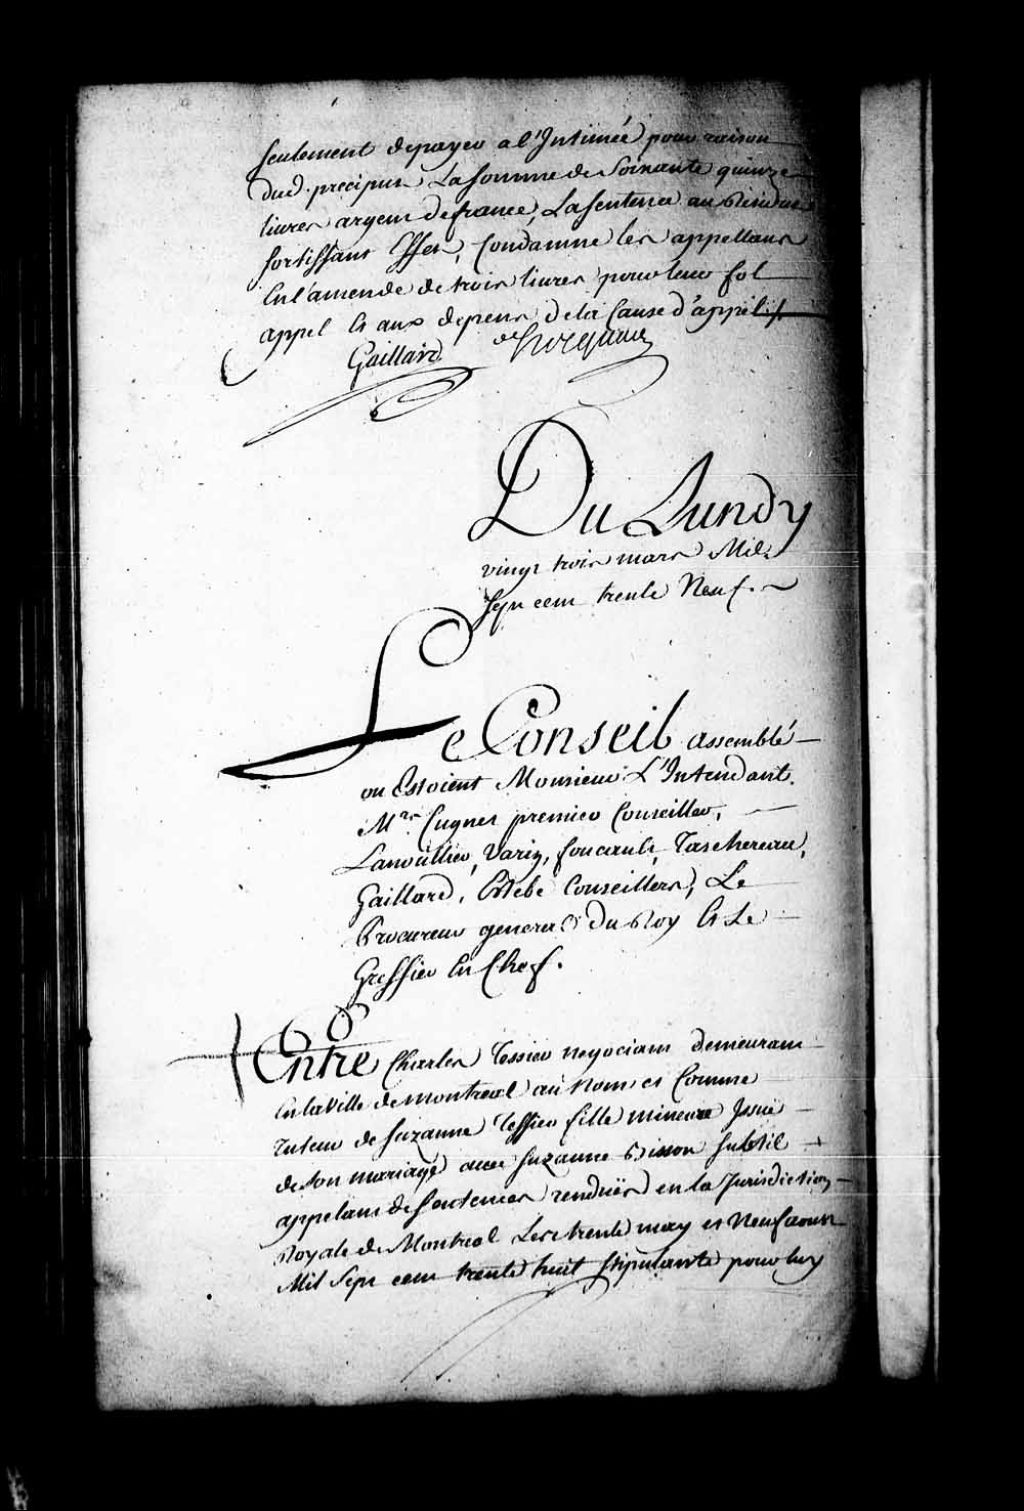 seulement depayer a l'Intimée pour raison
dud. preciput La somme de Soixante quinze
livres argent de france, La sentence au Residu
sortissant Effet, Condamne les appellans
En l'amende de trois livres pour leur fol
appel Et aux depens de la Cause d'appel ./.
Gaillard hocquart
Du Lundy
vingt trois mars Mil
sept cent trente Neuf.
Le Conseil assemblé
ou Estoient Monsieur L'Intendant.
Mrs. Cugnet premier Conseiller,
Lanoüillier, Varin, foucault, Taschereau,
Gaillard, Estebe Conseillers, Le
Procureur general Du Roy Et Le
Greffier En Chef.
Entre Charles Tessier negociant demeurant
En la Ville de montreal au Nom et Comme
Tuteur de Suzanne Tessier fille mineure Issüe
de son mariage avec Suzanne Sisson
appelant de Sentences rendües en la Jurisdiction
Royale de Montreal Les trente may et Neuf aoust
Mil Sept cent trente huit stipulante pour luy